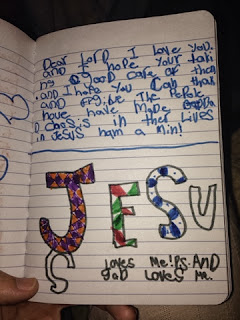 Dear Lord I love you.
and I hope your taki
ng good care of them
and I hope You Can that
and forgive The Pepole
have have Made
D Chosis in ther Lives
in JESUS nam a Min!
JESUS
loves Me! Ps: AND
gad LOVES Me.